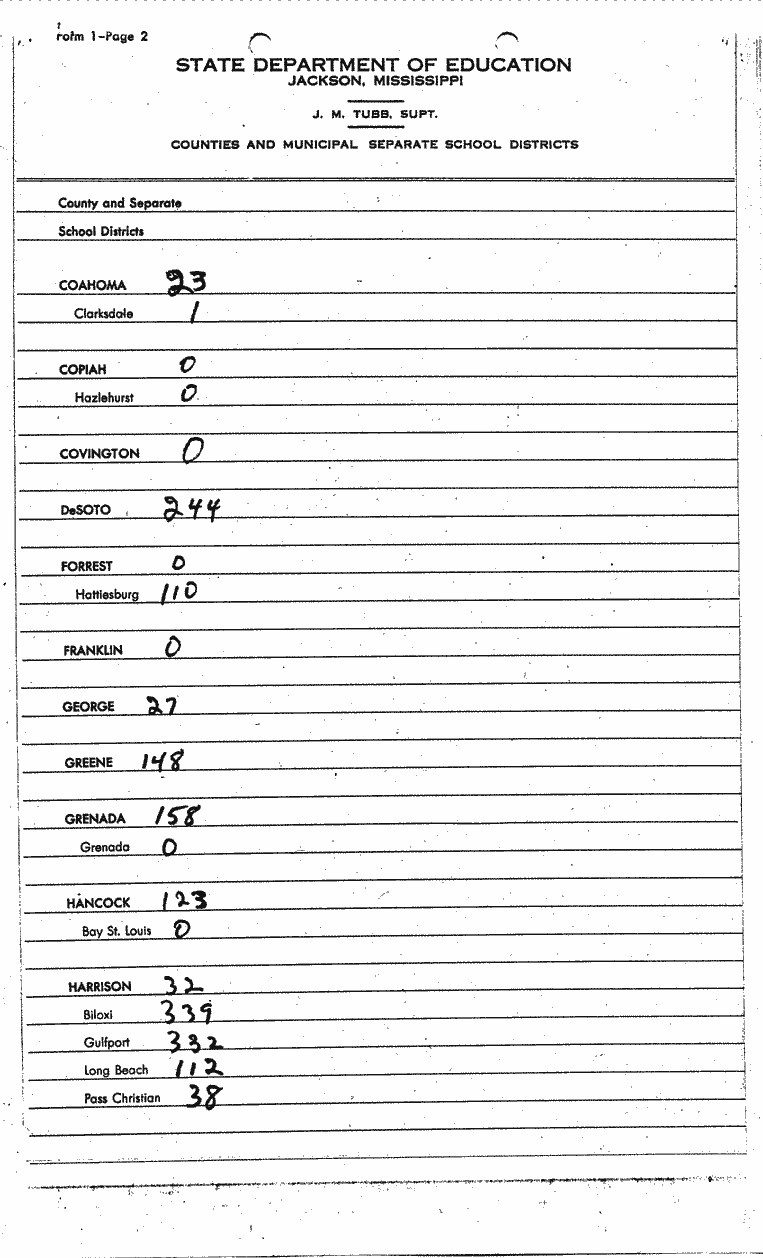 Form 1-Page 2
STATE DEPARTMENT OF EDUCATION
JACKSON, MISSISSIPPI
J. M. TUBB, SUPT.
COUNTIES AND MUNICIPAL SEPARATE SCHOOL DISTRICTS
County and Separate
School Districts
COAHOMA 23
Clarksdale 1
COPIAH 0
Hazlehurst 0
COVINGTON 0
DeSOTO 244
FORREST 0
Hattiesburg 110
FRANKLIN 0
GEORGE 27
GREENE 148
GRENADA 158
Grenada 0
HANCOCK 123
Bay St. Louis 0
HARRISON 32
Biloxi 339
Gulfport 332
Long Beach 112
Pass Christian 38